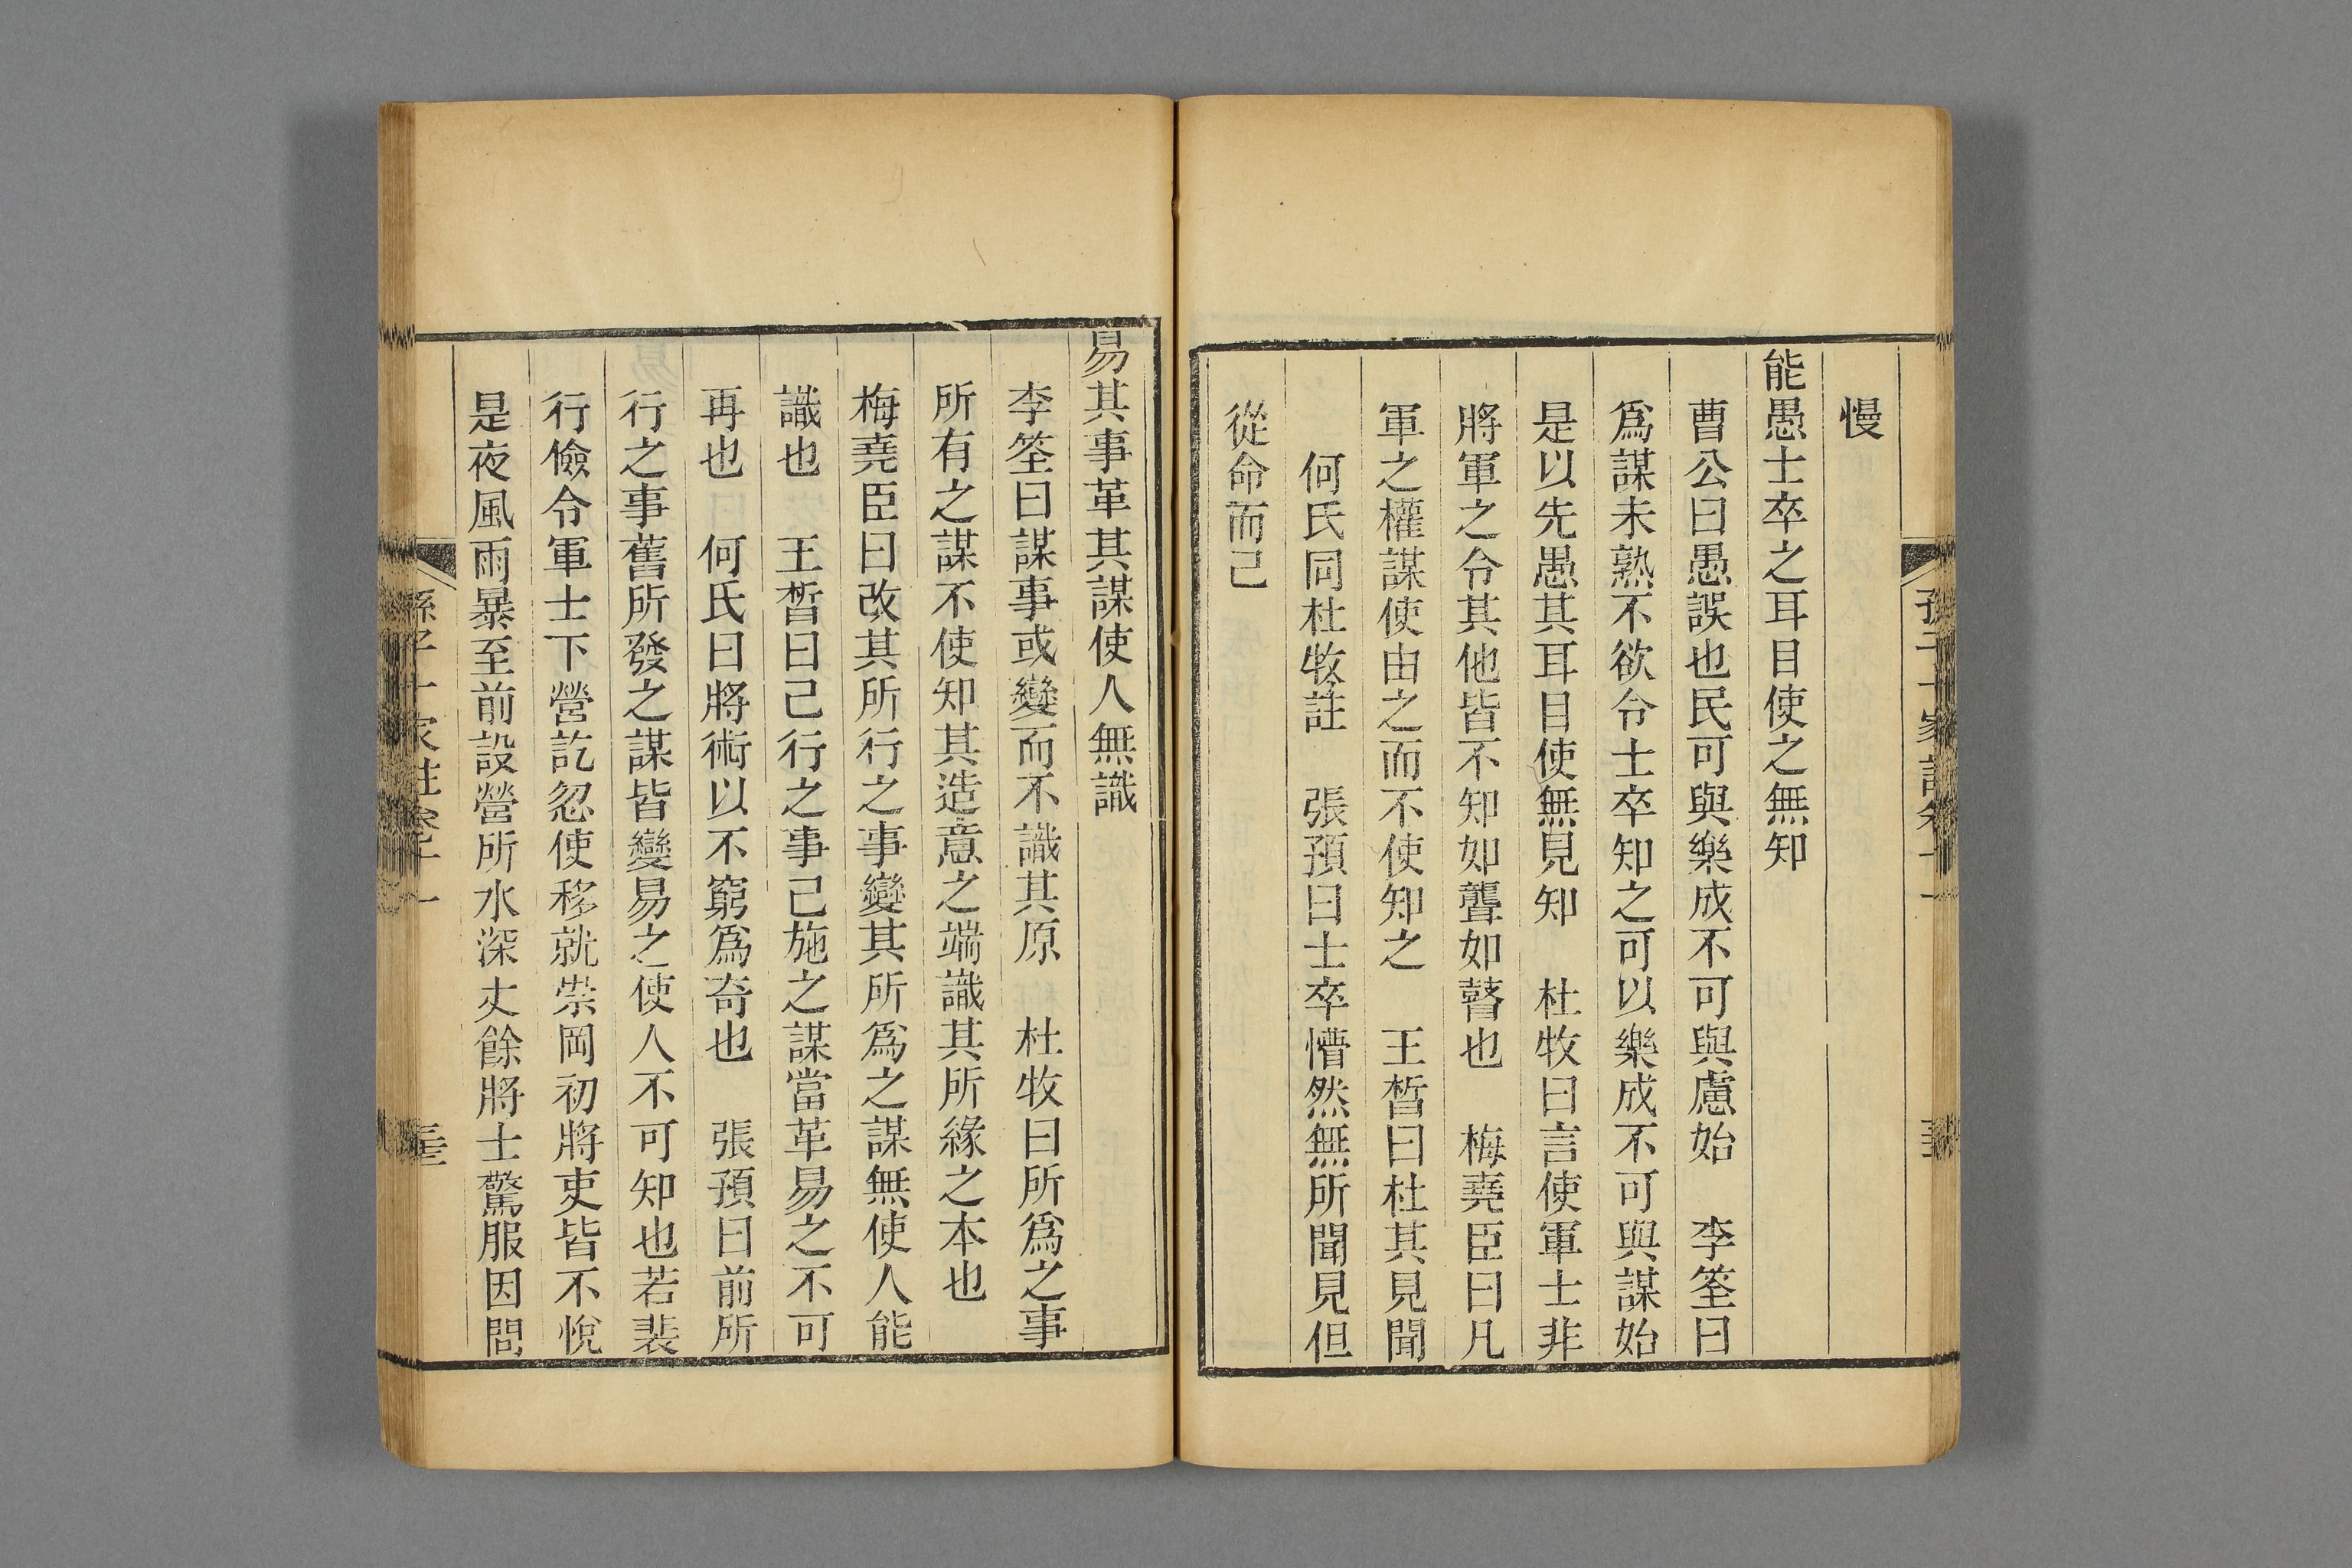 慢
能愚士卒之耳目使之無知
曹公曰愚誤也民可與樂成不可與慮始　李筌曰
爲謀未熟不欲令士卒知之可以樂成不可與謀始
是以先愚其耳目使無見知　杜牧曰言使軍士非
將軍之令其他皆不知如聾如瞽也　梅堯臣曰凡
軍之權謀使由之而不使知之　王晳曰杜其見聞
何氏同杜牧註　張預曰士卒懵然無所聞見但
從命而己
易其事革其謀使人無識
李筌曰謀事或變而不識其原　杜牧曰所爲之事
所有之謀不使知其造意之端識其所緣之本也
梅堯臣曰改其所行之事變其所爲之謀無使人能
識也　王晳曰己行之事己施之謀當革易之不可
再也　何氏曰將術以不窮爲奇也　張預曰前所
行之事舊所發之謀皆變易之使人不可知也若裴
行儉令軍士下營訖忽使移就崇岡初將吏皆不悅
是夜風雨暴至前設營所水深丈餘將士驚服因問